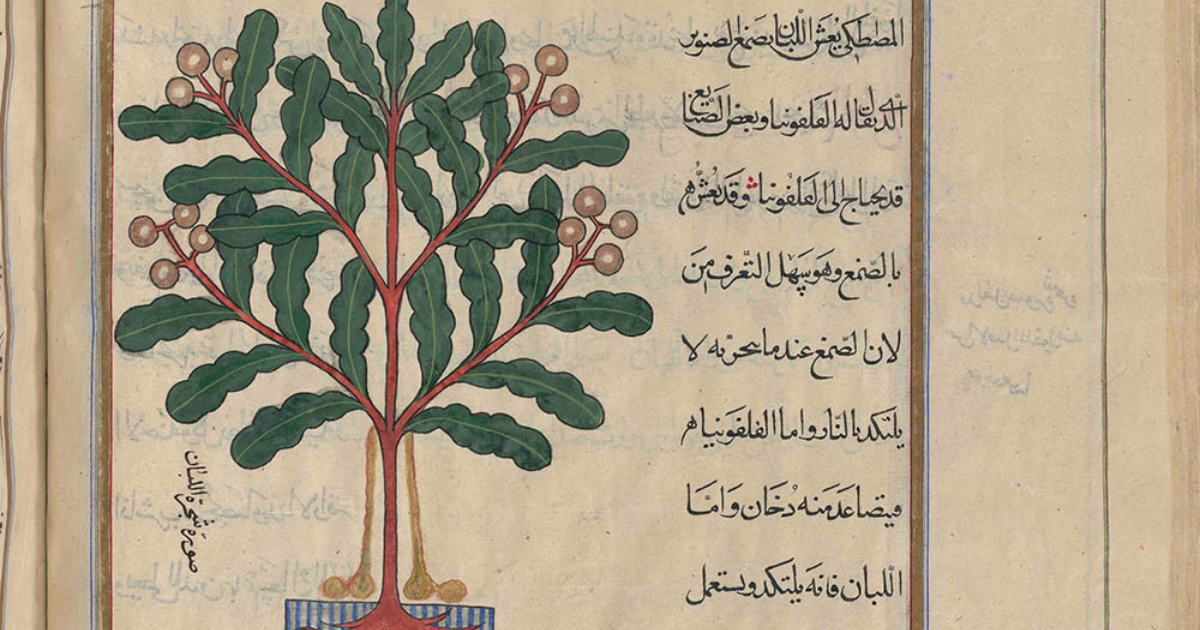 المصطكى يغش اللبان بصمغ الصنوبر
الذى يقال له القلفونيا وبعض الصنايع
قد يحتاج الى القلفونيا وقد يغش هم
بالصمغ وهو سهل التعرف من
لان الصمغ عندما يبخر به لا
يلتكد بالنار واما القلفونيا هم
فيتصاعد منه دخان واما
اللبان فانه يلتكد ويستعمل
صورة شجرة اللبان